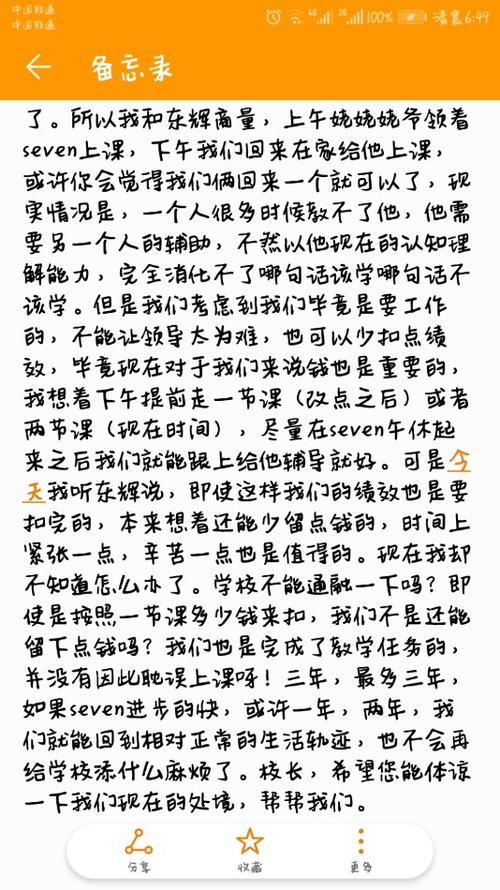 中国联通
中国联通
4G 2G 100% 清晨6:49
备忘录
了。所以我和东辉商量，上午姥姥姥爷领着
seven上课，下午我们回来在家给他上课，
或许你会觉得我们俩回来一个就可以了，现
实情况是，一个人很多时候教不了他，他需
要另一个人的辅助，不然以他现在的认知理
解能力，完全消化不了哪句话该学哪句话不
该学。但是我们考虑到我们毕竟是要工作
的，不能让领导太为难，也可以少扣点绩
效，毕竟现在对于我们来说钱也是重要的，
我想着下午提前走一节课（改点之后）或者
两节课（现在时间），尽量在seven午休起
来之后我们就能跟上给他辅导就好。可是今
天我听东辉说，即使这样我们的绩效也是要
扣完的，本来想着还能少留点钱的，时间上
紧张一点，辛苦一点也是值得的。现在我却
不知道怎么办了。学校不能通融一下吗？即
使是按照一节课多少钱来扣，我们不是还能
留下点钱吗？我们也是完成了教学任务的，
并没有因此耽误上课呀！三年，最多三年，
如果seven进步的快，或许一年，两年，我
们就能回到相对正常的生活轨迹，也不会再
给学校添什么麻烦了。校长，希望您能体谅
一下我们现在的处境，帮帮我们。
分享 收藏 更多